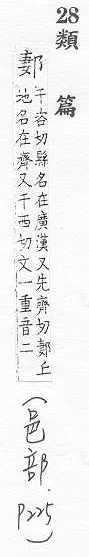 28 類篇
郪 千咨切縣名在廣漢又先齊切郪丘
地名在齊又千西切文一重音二
(邑部.P225)